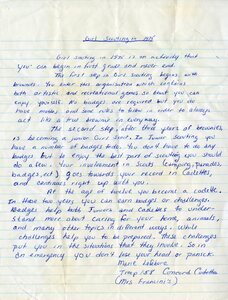 Girl Scouting in 1975
Girl Scouting in 1975 is an activity that
you can begin in first grade and never end.
The first step in Girl Scouting begins with
brownies. You enter this organization which contains
both artistic and recreational games so that you can
enjoy yourself. No badges are required but you do
have mottos, and some rules to follow in order to always
act like a true brownie in everyway.
The second step, after three years of brownies
is becoming a junior Girl Scout. In Junior Scouting you
have a number of badges to do. You don't have to do any
badges but to enjoy the best part of scouting you should
do a few. Your involvement in Scouts (camping, parades,
badges, ect.) goes towards your record in Cadettes
and continues right up until you.
At the age of twelve you become a cadette.
In these two years you can earn badges or challenges.
Badges help both Juniors and Cadettes to under-
stand more about caring for your home, animals,
and many other topics in different ways. While
challenges help you to be prepared. These challenges
put you in the situations that they involve. So in
an emergency you don't lose your head or panick.
Marie Lefebvre
Troop 158 Concord Cadettes
(Mrs